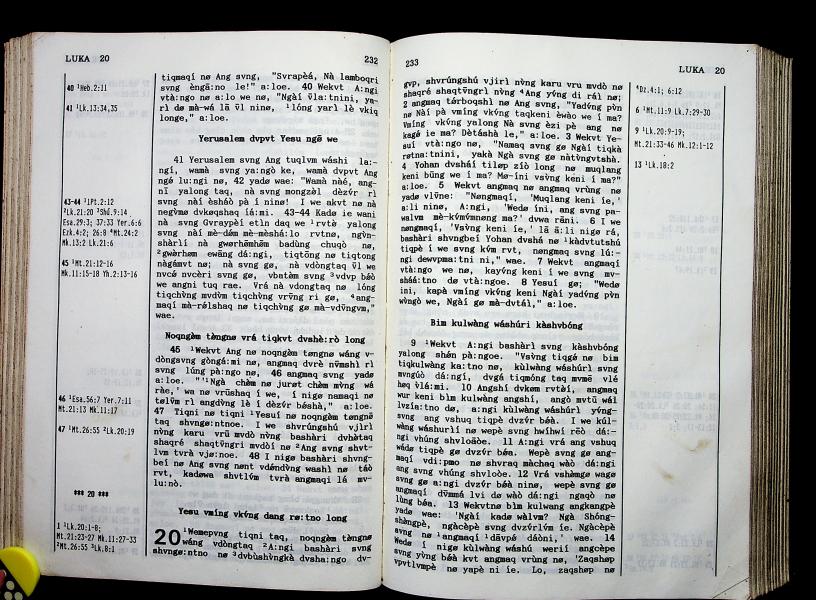 LUKA 20
232
40 ¹Heb.2:11
41 ¹Lk.13:34,35
43-44 ¹1Pt.2:12
²Lk.21:20 ³Shd.9:14
Esa.29:3; 37:33 Yer.6:6
Ezk.4:2; 26:8 ⁴Mt.24:2
Mk.13:2 Lk.21:6
45 ¹Mt.21:12-16
Mk.11:15-18 Yh.2:13-16
46 ¹Esa.56:7 Yer.7:11
Mt.21:13 Mk.11:17
47 ¹Mt.26:55 ²Lk.20:19
*** 20 ***
1 ¹Lk.20:1-8;
Mt.21:23-27 Mk.11:27-33
²Mt.26:55 ³Lk.8:1
tiqmaqí nø Ang svng, "Svrapèá, Nà lamboqri
svng èngā:no le!" a:loe. 40 Wekvt A:ngi
vtà:ngo nø a:lo we nø, "Ngàí v̄la:tnini, ya-
rì dø mà-wá lā v̄l ninø, ¹lóng yarì lè vkiq
longe," a:loe.
Yerusalem dvpvt Yesu ngø̄ we
41 Yerusalem svng Ang tuqlvm wáshì la:-
ngí, wamā svng ya:ngò ke, wamā dvpvt Ang
ngø̄ lu:ngi nø, 42 yadø wae: "Wamà nàé, ang-
nī yalong taq, nà svng mongzel dèzv́r rì
svng nàí èshāò pà í nino! I we akvt nø nà
negvmø dvkøqshaq íá:mi. 43-44 Kadø ie wani
nà svng Gvraypè etln daq we ¹rvtø yalong
svng nàí mè-dǿm mè-mèshá:lo rvtnø, ngv̀n-
shàrlì nà gwørhēmhēm badùng chuqò nø,
²gwø̀rhøm ewāng dá:ngi, tiqtōng nø tiqtong
nàgámvt nø; nà svng gø, nà vdòngtaq v̄l we
nvcè nvcèri svng gø, vbatèm svng ³vdvp bèò
we angni tuq rae. Vrá nà vdongtaq nø lóng
tiqchv̀ng mvdv̀m tiqchv̀ng vrv̄ng ri gø, ⁴ang-
maqí mà-rálshaq nø tiqchv̀ng gø mà-vdv̄ngvm,"
wae.
Noqngèm tø̀ngnø vrá tiqkvt dvshè:rò long
45 ¹Wekvt Ang nø noqngèm tøngnø wáng v-
dòngsvng gòngá:mi nø, angmaq dvrè nv̄mshì rì
svng lúng pà:ngo nø, 46 angmaq svng yadø
a:loe: "'¹Ngà chèm nø jurøt chèm mv̀ng wá
ràe,' wa nø vrūshaq í we, í nigø namaqí nø
tølv̄m rì angdv̀ng lè ì dèzv́r bèshà," a:loe.
47 Tiqni nø tiqni ¹Yesuí nø noqngèm tøngnø̄
taq shvngø:ntnoe. I we shvrúngshú vjìrì
nv̀ng karu vrū mvdò nv̀ng bashàri dvhètaq
shaqré shaqtv̄ngri mvdòí nø ²Ang svng shvt-
lvm tvrà vjø:noe. 48 I nigø bashàri shvng-
beí nø Ang svng nønt vdǿndv̀ng washì nø táò
rvt, kadøwa shvtlv́m tvrà angmaqí lá mv-
lu:nò.
Yesu vmíng vkv́ng dang rø:tno long
20 ¹Wemepvng tiqni taq, noqngèm tøngnø
wáng vdòngtaq ²A:ngi bashàri svng
shvngø:ntno nø ³dvbùshv̀ngkà dvsha:ngo dv-
233
LUKA 20
gvp, shvrúngshú vjìrì nv̀ng karu vru mvdò nø
shaqré shaqtv̄ngrì nv̀ng ⁴Ang yv́ng di rál nø;
2 angmaq tǿrboqshì nø Ang svng, "Yadv́ng pv̀n
nø Nàí pà vmíng vkv́ng taqkeni èwáò we í ma?
Vmíng vkv́ng yalong Nà svng èzì pè ang nø
kagø ie ma? Dètáshà le," a:loe. 3 Wekvt Ye-
suí vtà:ngo nø, "Namaq svng gø Ngàí tiqkà
røtna:tnini, yakà Ngà svng gø nàtv̀ngvtshà.
4 Yohan dvsháí tìløp zíò long nø muqlang
keni būng we í ma? Mø-íni vsv̀ng keni í ma?"
a:loe. 5 Wekvt angmaq nø angmaq vrūng nø
yadø vlv̄ne: "Nøngmaqí, 'Muqlang keni íe,'
a:lì ninø, A:ngi, 'Wedø íni, ang svng pa-
walvm mè-kv́mv́mnøng ma?' dvwa rāni. 6 I we
nøngmaqí, 'Vsv̀ng keni íe,' lā ā:li nigø rá,
bashàri shvngbeí Yohan dvshá nø ¹kàdvtutshú
tiqpè í we svng kv́m rvt, nøngmaq svng lú:-
ngi dewvpma:tni ni," wae. 7 Wekvt angmaqí
vtà:ngo we nø, kayv̀ng keni í we svng mv-
sháá:tno dø vtà:ngoe. 8 Yesuí gø; "Wedø
íni, kapà vmíng vkv́ng keni Ngàí yadv́ng pv̀n
wv̀ngò we, Ngàí gø mà-dvtál," a:loe.
Bìm kulwàng wáshúri kàshvbóng
9 ¹Wekvt A:ngi bashàrì svng kàshvbóng
yalong shǿn pà:ngoe. "Vsv̀ng tiqgø̄ nø bim
tiqkulwàng ka:tno nø, kùlwàng wáshúrì svng
mvngúò dá:ngí, dvgø tiqmóng taq mvmē vlé
høq v̀lá:mi. 10 Angshì dvkøm rvtàí, angmaq
wur keni bìm kulwàng angshí, angò mvtū wál
lvzìa:tno dø, a:ngi kùlwàng wáshúri, yv́ng-
svng ang vshuq tiqpè dvzv́r bǿá. I we kúl-
wàng wáshurìí nø wepè svng hwìhwì rēò dá:-
ngi vhúng shvlòāòe. 11 A:ngí vrá ang vshuq
wǿdø tiqpè gø dvzv́r bǿá. Wepè svng gø ang-
maqí vdi:pmo nø shvraq màchaq wàò dá:ngi
ang svng vhúng shvlòe. 12 Vrá vshàmgø wagø
svng gø a:ngi dvzv́r bǿá ninø, wepè svng gø
angmaqí dv̄mmá lvì dø wàò dá:ngi ngaqò nø
lùng bǿa. 13 Wekvtnø bìm kulwang angkangpè
yadø wae: 'Ngàí kadø wàlvm? Ngà Shóng-
shàngpè, ngàcèpè svng dvzv́rlv́m íe. Ngàcèpè
svng nø ¹angmaqí ¹dāvpé dáòni,' wae. 14
Wedø í nigø kùlwàng wáshú werìí angcèpe
svng yv̀ng bǿà kvt angmaq vrūng nø, 'Zaqshøp
vpvtlvmpè nø yapè ni íe. Lo, zaqshøp nø
⁴Dz.4:1; 6:12
6 ¹Mt.11:9 Lk.7:29-30
9 ¹Lk.20:9-19;
Mt.21:33-46 Mk.12:1-12
13 ¹Lk.18:2